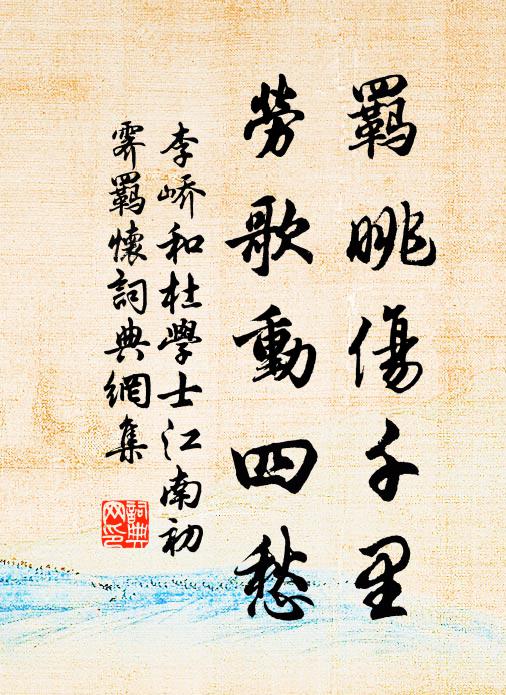 羈眺傷千里
勞歌動四愁
李嶠和杜學士江南初
霽羈懷詞典網集
詞典
网印